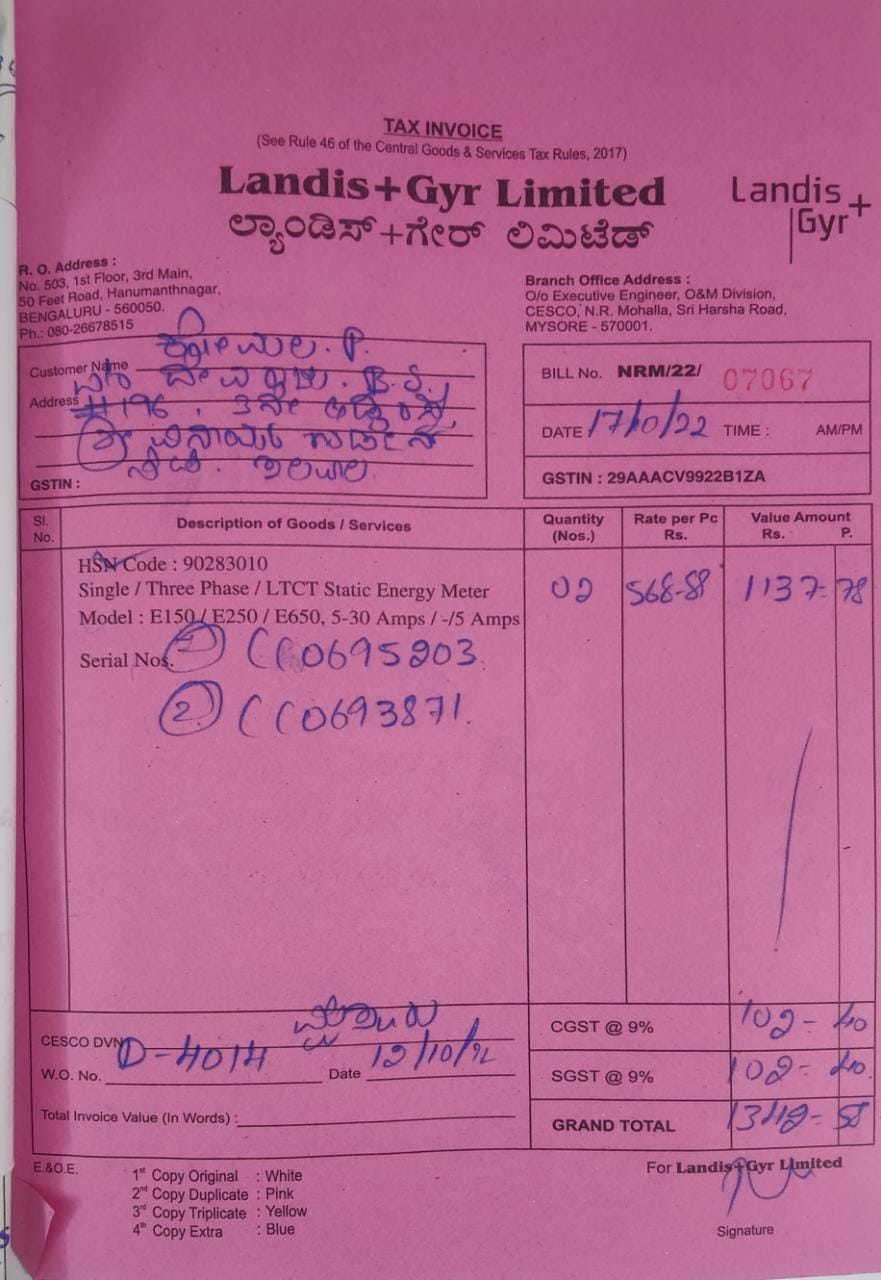 TAX INVOICE
(See Rule 46 of the Central Goods & Services Tax Rules, 2017)
Landis+Gyr Limited
ಲ್ಯಾಂಡಿಸ್+ಗೇರ್ ಲಿಮಿಟೆಡ್
Landis
Gyr+
R. O. Address :
No. 503, 1st Floor, 3rd Main,
50 Feet Road, Hanumanthnagar,
BENGALURU - 560050.
Ph.: 080-26678515
Branch Office Address :
O/o Executive Engineer, O&M Division,
CESCO, N.R. Mohalla, Sri Harsha Road,
MYSORE - 570001.
Customer Name P.
B.S,
Address #196, 3ನೇ
ಶ್ರೀ ವಿನಾಯಕ
GSTIN :
BILL No. NRM/22/ 07067
DATE 17/10/22 TIME : AM/PM
GSTIN : 29AAACV9922B1ZA
Sl. No. Description of Goods / Services Quantity (Nos.) Rate per Pc Rs. Value Amount Rs. P.
HSN Code : 90283010
Single / Three Phase / LTCT Static Energy Meter 02 568-88 1137- 78
Model : E150 / E250 / E650, 5-30 Amps / -/5 Amps
Serial Nos. 1 CC0695203
2 CC0693871.
CGST @ 9% 102- 40
CESCO DVN
SGST @ 9% 102- 40
W.O. No. D-4014 Date 12/10/22
Total Invoice Value (In Words) :
GRAND TOTAL 1342- 58
E.&O.E.
1st Copy Original : White
2nd Copy Duplicate : Pink
3rd Copy Triplicate : Yellow
4th Copy Extra : Blue
For Landis+Gyr Limited
Signature